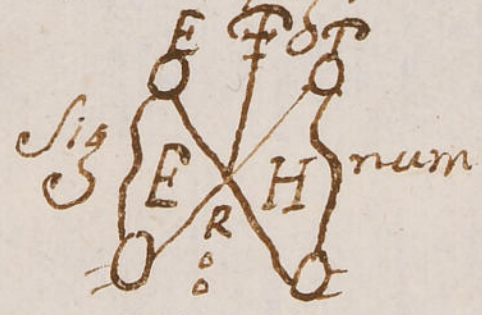 E
Sig E H num
R